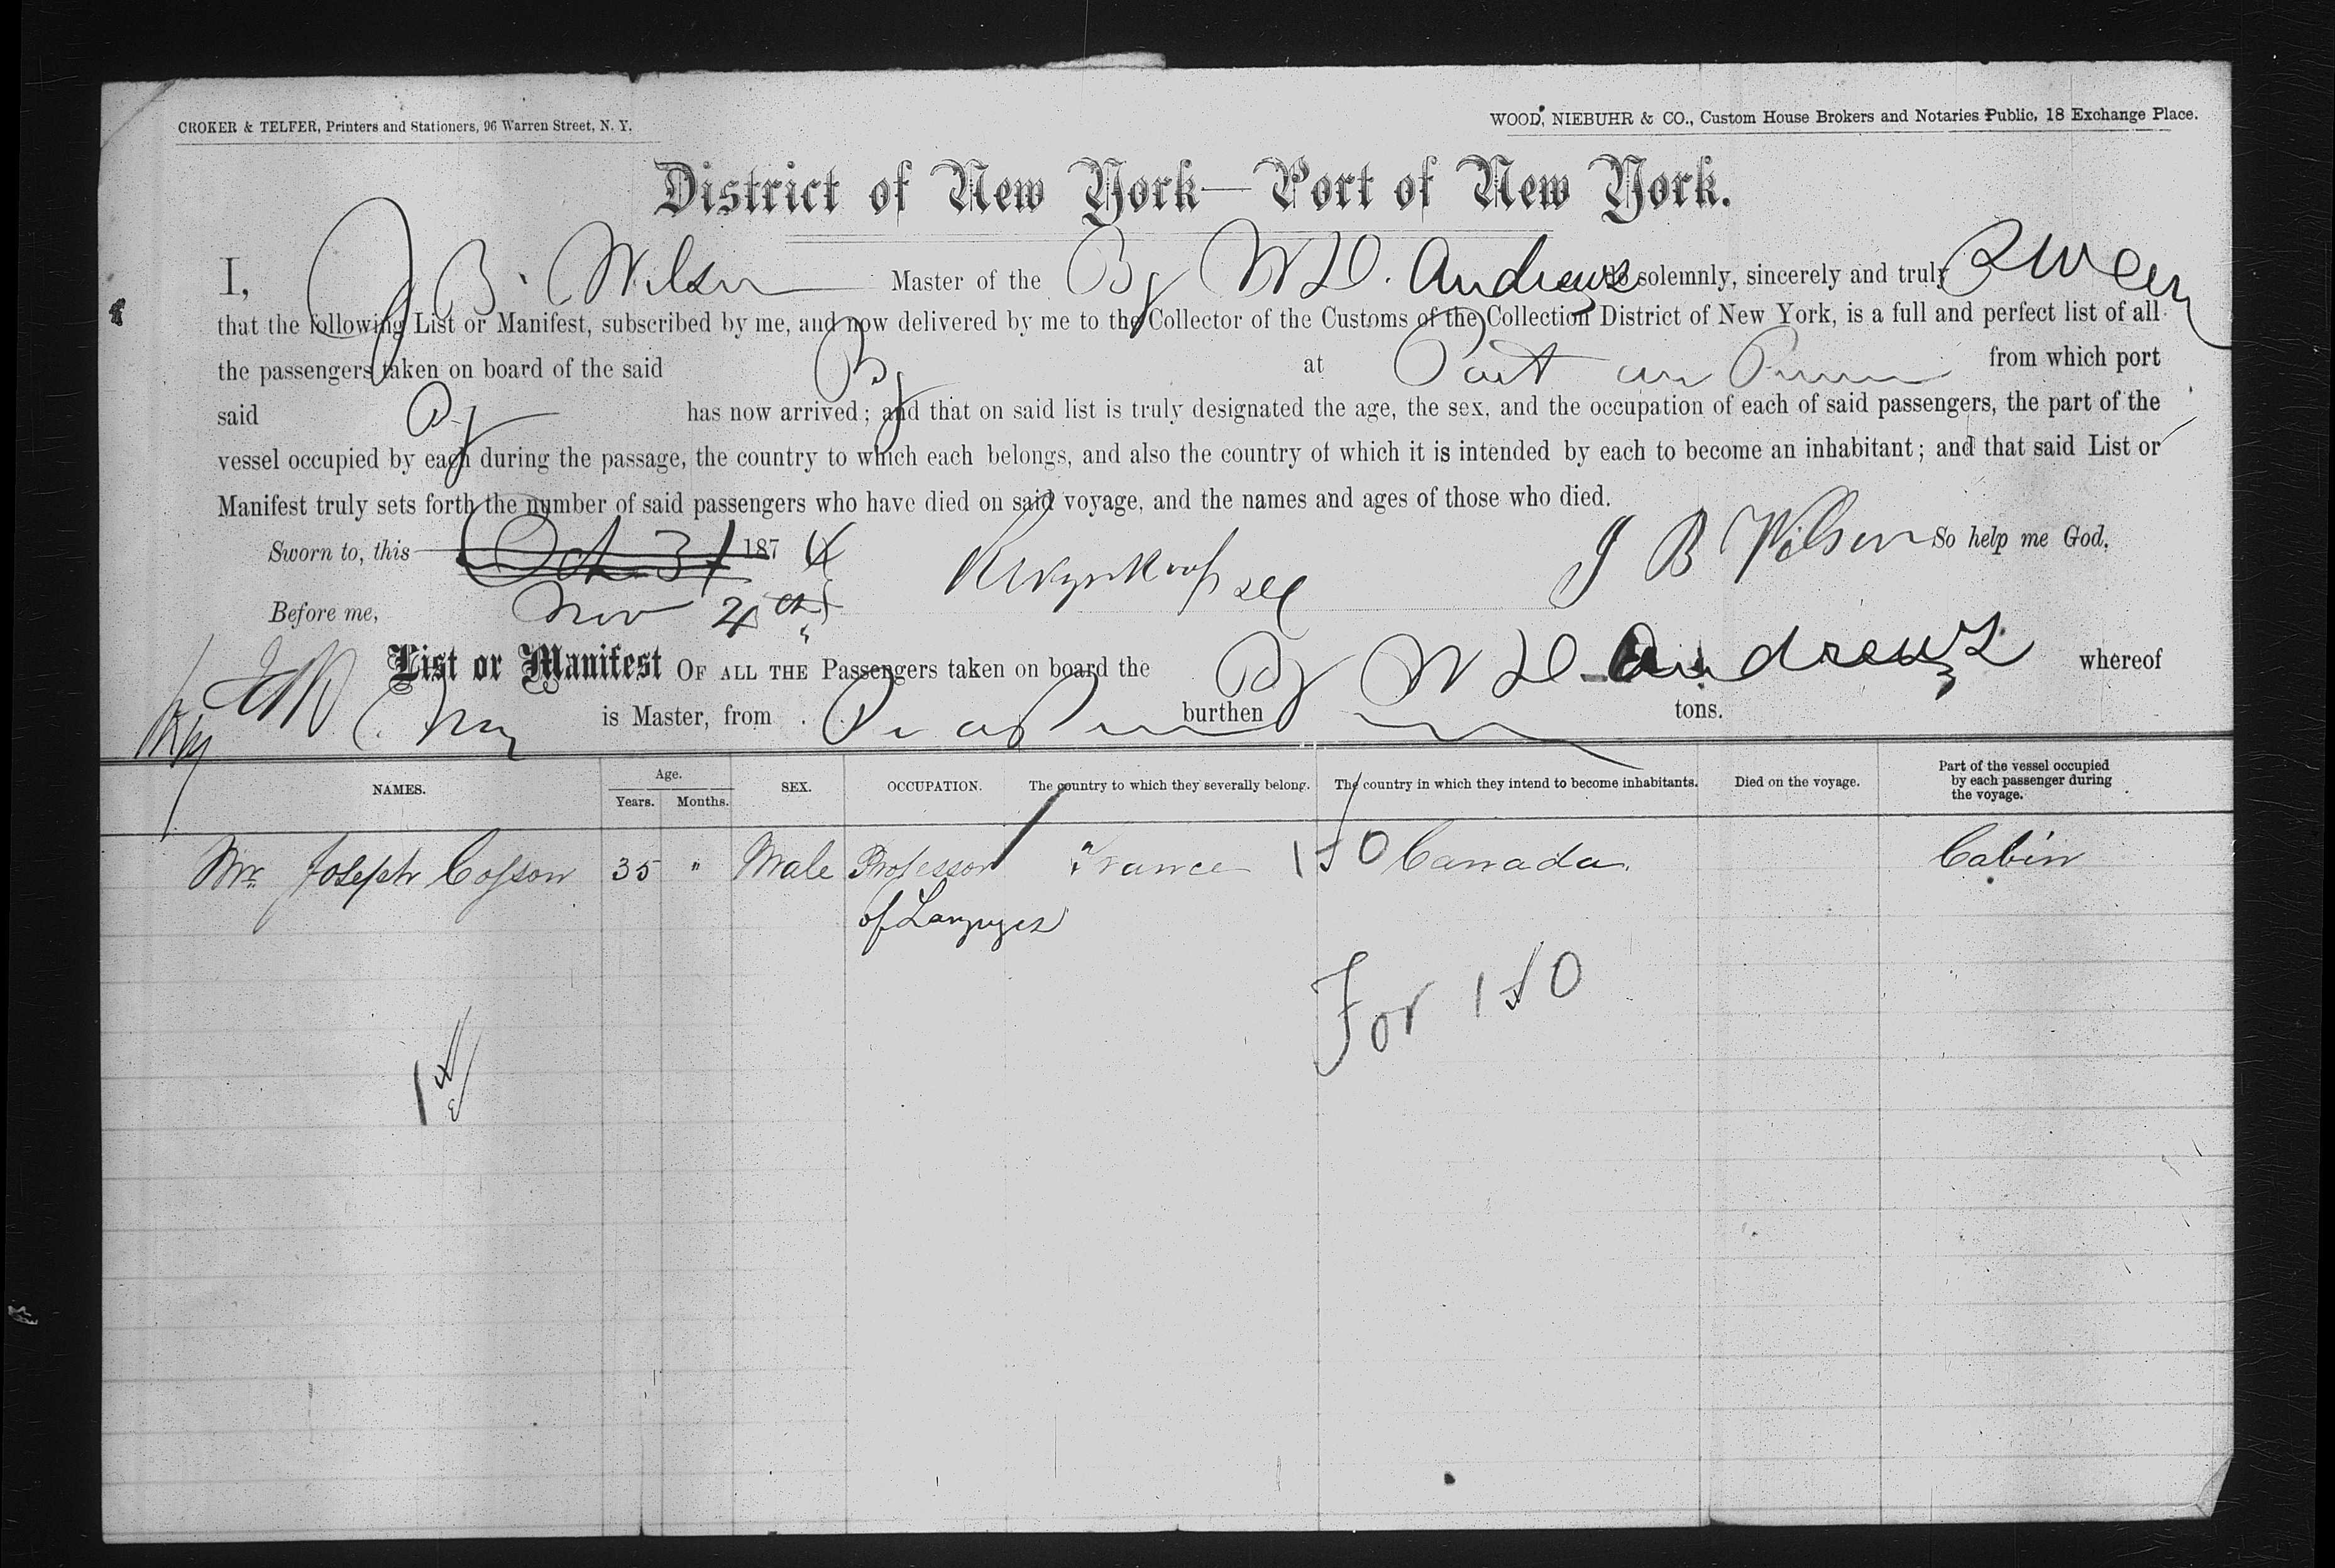 CROKER & TELFER, Printers and Stationers, 96 Warren Street, N. Y.
WOOD, NIEBUHR & CO., Custom House Brokers and Notaries Public, 18 Exchange Place.
District of New York—Port of New York.
I, J B. Wilson Master of the Bg W D. Andrews do solemnly, sincerely and truly swear
that the following List or Manifest, subscribed by me, and now delivered by me to the Collector of the Customs of the Collection District of New York, is a full and perfect list of all
the passengers taken on board of the said Bg at Port au Prince from which port
said Bg has now arrived; and that on said list is truly designated the age, the sex, and the occupation of each of said passengers, the part of the
vessel occupied by each during the passage, the country to which each belongs, and also the country of which it is intended by each to become an inhabitant; and that said List or
Manifest truly sets forth the number of said passengers who have died on said voyage, and the names and ages of those who died.
Sworn to, this Oct 31 187 4 J B Wilson So help me God,
Before me, Nov 4th
List or Manifest OF ALL THE Passengers taken on board the Bg W D Andrews whereof
is Master, from burthen tons.
NAMES. Age. Years. Months. SEX. OCCUPATION. The country to which they severally belong. The country in which they intend to become inhabitants. Died on the voyage. Part of the vessel occupied by each passenger during the voyage.
Mr. Joseph Cosson 35 " Male Professor France 150 Canada. Cabin
of Languges
For 150